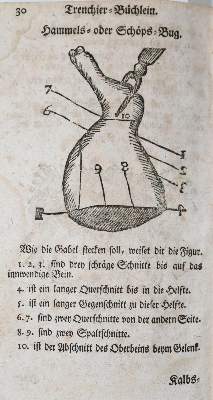 30 Trenchier-Büchlein.
Hammels- oder Schöps-Bug.
7
10
6
1
2
3
9 8
Wie die Gabel stecken soll, weiset dir die Figur.
1. 2. 3. sind drey schräge Schnitte bis auf das
innwendige Bein.
4. ist ein langer Querschnitt bis in die Helfte.
5. ist ein langer Gegenschnitt zu dieser Helfte.
6. 7. sind zwey Querschnitte von der andern Seite.
8. 9. sind zwey Spaltschnitte.
10. ist der Abschnitt des Oberbeins beym Gelenk.
Kalbs-